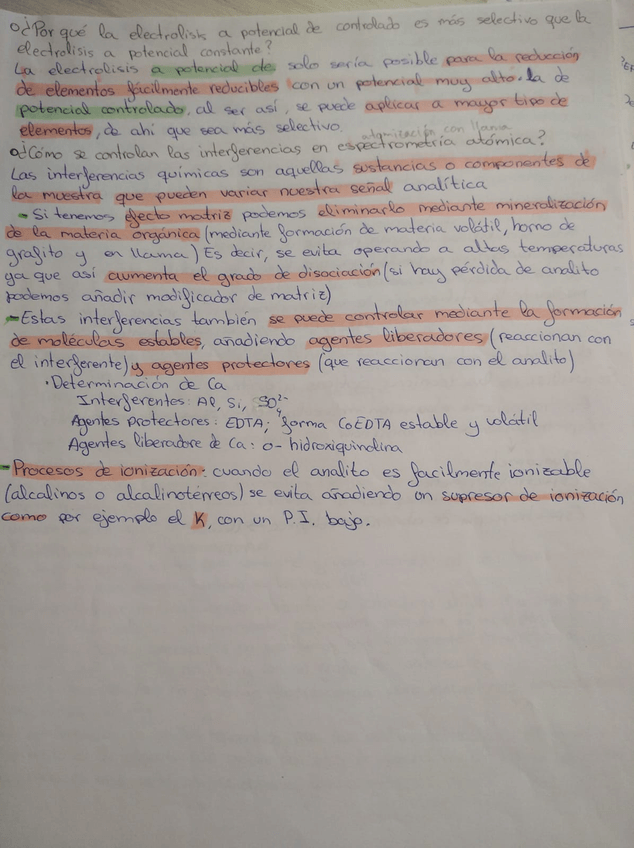 o¿Por qué la electrolisis a potencial de controlado es más selectivo que la
electrolisis a potencial constante?
La electrolisis a potencial cte solo sería posible para la reducción
de elementos fácilmente reducibles con un potencial muy alto. la de
potencial controlado, al ser así, se puede aplicar a mayor tipo de
elementos, de ahi que sea más selectivo.
atomización con llama
o¿Cómo se controlan las interferencias en espectrometría atómica?
Las interferencias químicas son aquellas sustancias o componentes de
la muestra que pueden variar nuestra señal analítica
- Si tenemos efecto matriz podemos eliminarlo mediante mineralización
de la materia orgánica (mediante formación de materia volátil, horno de
grafito y en llama) Es decir, se evita operando a altas temperaturas
ya que así aumenta el grado de disociación (si hay pérdida de analito
podemos añadir modificador de matriz)
- Estas interferencias también se puede controlar mediante la formación
de moléculas estables, añadiendo agentes liberadores (reaccionan con
el interferente) y agentes protectores (que reaccionan con el analito)
· Determinación de Ca
Interferentes: Al, Si, SO₄²⁻
Agentes protectores: EDTA; forma CaEDTA estable y volátil
Agentes liberadore de Ca: o-hidroxiquinolina
- Procesos de ionización: cuando el analito es facilmente ionizable
(alcalinos o alcalinotérreos) se evita añadiendo un supresor de ionización
como por ejemplo el K, con un P.I. bajo.